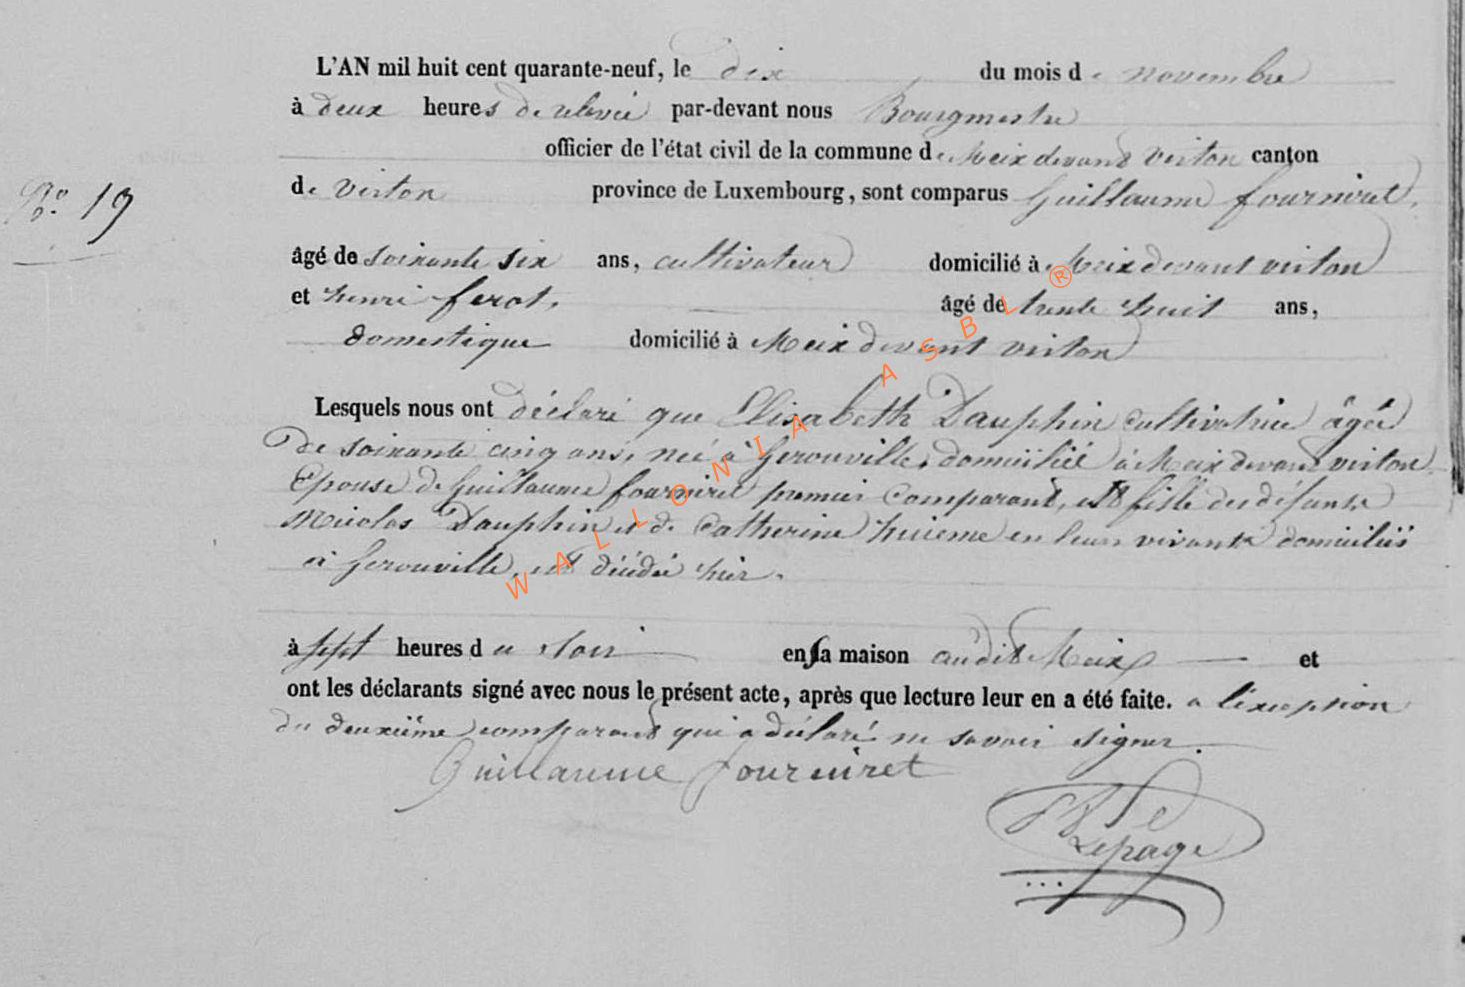 L'AN mil huit cent quarante-neuf, le dix du mois de novembre
à deux heures de relevée par-devant nous Bourgmestre
officier de l'état civil de la commune de Meix devant Virton canton
de Virton province de Luxembourg, sont comparus Guillaume fourniret,
N° 19
âgé de soixante six ans, cultivateur domicilié à Meix devant virton
et henri ferot, âgé de trente huit ans,
domestique domicilié à Meix devant virton
Lesquels nous ont déclaré que Elisabeth Dauphin cultivatrice âgée
de soixante cinq ans, née à Gerouville, domicilié à Meix devant virton
Epouse de Guillaume fourniret premier comparant, est fille des défunts
Nicolas Dauphin et de Catherine huieme en leurs vivants domiciliés
à Gerouville, est décédée hier.
à sept heures du soir en sa maison audit Meix et
ont les déclarants signé avec nous le présent acte, après que lecture leur en a été faite. a l'exception
du deuxième comparant qui a déclaré ne savoir signer.
Guillaume fourniret
Lepage
WALLONIA ASBL ®